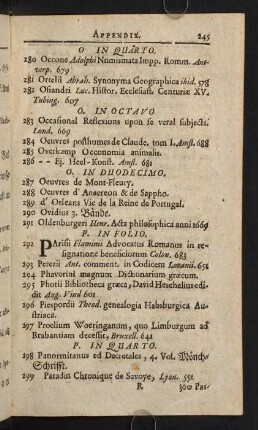 APPENDIX. 245
O IN QUARTO.
280 Occone Adolphi Numismata Impp. Romm. Ant-
verp. 679
281 Ortelii Abrah. Synonyma Geographica ibid. 578
282 Osiandri Luc. Histor. Ecclesiast. Centuriæ XV.
Tubing. 607
O. IN OCTAVO
283 Occasional Reflexions upon se veral subjects,
Lond. 669
284 Oeuvres posthumes de Claude, tom I. Amst. 688
285 Overkamp Oeconomia animalis.
286 -- Ej. Heel-Konst. Amst. 681
O. IN DUODECIMO.
287 Oeuvres de Mont-Fleury.
288 Oeuvres d'Anacreon & de Sappho.
289 d'Orleans Vie de la Reine de Portugal,
290 Ovidius 3. Bände.
291 Oldenburgeri Henr. Acta philosophica anni 1669
P. IN FOLIO.
292 PArisii Flaminii Advocatus Romanus in re-
signatione beneficiorum Colon. 683
293 Perezii Ant. comment. in Codicem Lovanii. 651
294 Phavorini magnum Dictionarium græcum.
295 Photii Bibliotheca græca, David Heschelius edi-
dit Aug. Vind 601
296 Piespordii Theod. genealogia Habsburgica Aus-
triaca.
297 Proelium Woeringanum, quo Limburgum ad
Brabantiam decessit, Bruxell. 641
P. IN QUARTO.
298 Panormitanus ad Decretales, 4. Vol. Münch-
Schrifft.
299 Paradin Chronique de Savoye, Lyon. 552
R 300 Pas-